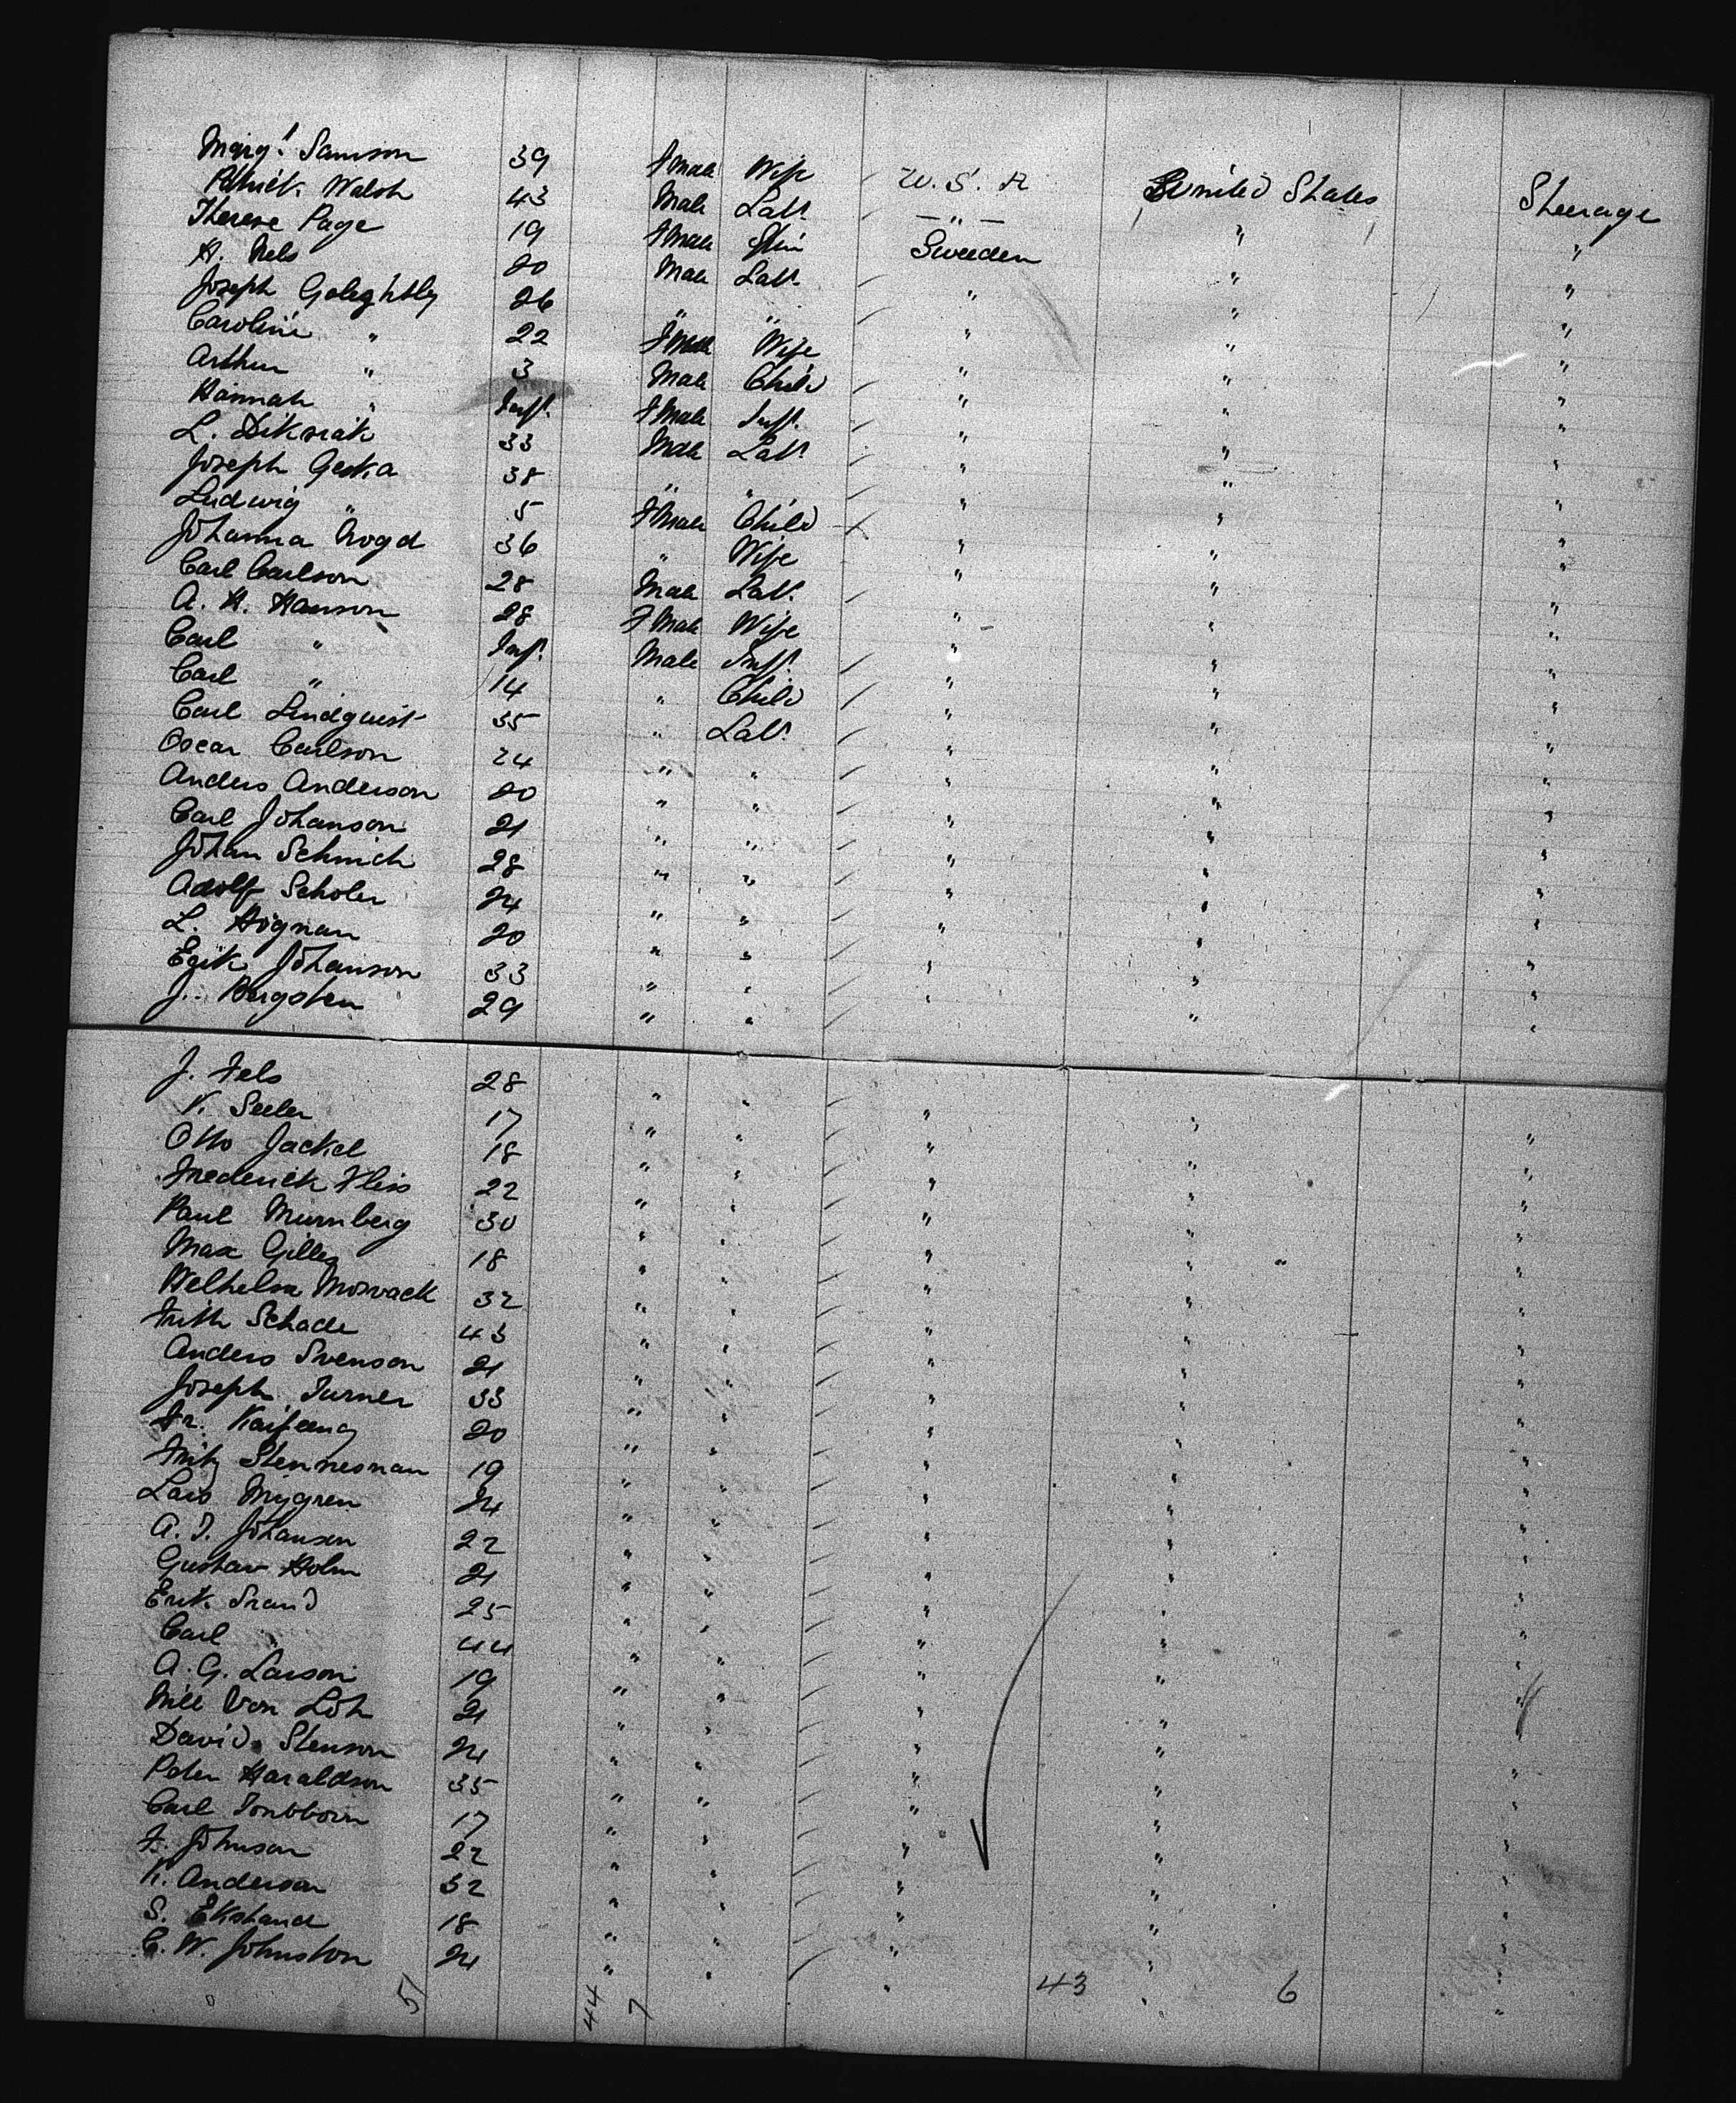 Marg! Samson 39 Fmale Wife U. S. A United States Steerage
Patrick Walsh 43 Male Labr. — " — " "
Therese Page 19 Fmale Spin Sweden " "
H. Nels 20 Male Labr. " " "
Joseph Golightly 26 " " " " "
Caroline " 22 Fmale Wife " " "
Arthur " 3 Male Child " " "
Hannah " Inft. Fmale Inft. " " "
L. Diksiak 33 Male Labr. " " "
Joseph Geska 38 " " " " "
Ludwig " 5 Fmale Child " " "
Johanna Nogd 36 " Wife " " "
Carl Carlson 28 Male Labr. " " "
A. H. Hanson 28 Fmale Wife " " "
Carl " Inft. Male Inft. " " "
Carl " 14 " Child " " "
Carl Lindquist 35 " Labr. " " "
Oscar Carlson 24 " " " " "
Anders Anderson 20 " " " " "
Carl Johanson 21 " " " " "
Johan Schmich 28 " " " " "
Adolf Scholer 24 " " " " "
L. Hognan 20 " " " " "
Egik Johanson 33 " " " " "
J. Bergsten 29 " " " " "
J. Fels 28 " " " " "
N. Seeler 17 " " " " "
Otto Jackel 18 " " " " "
Frederick Fliss 22 " " " " "
Paul Murnberg 30 " " " " "
Max Gilles 18 " " " " "
Welhelm Mowack 32 " " " " "
Frith Schade 43 " " " " "
Anders Svenson 21 " " " " "
Joseph Turner 33 " " " " "
Fr. 20 " " " " "
Fritz Stennesman 19 " " " " "
Lars Mygren 24 " " " " "
A. J. Johansen 22 " " " " "
Gustav Holm 21 " " " " "
Erik Srand 25 " " " " "
Carl " 44 " " " " "
A. G. Larson 19 " " " " "
Nill Von Loh 21 " " " " "
David Stenson 24 " " " " "
Peter Haraldson 35 " " " " "
Carl 17 " " " " "
F. Johnson 22 " " " " "
K. Anderson 32 " " " " "
S. Ekstrand 18 " " " " "
C. W. Johnston 24 " " " " "
51 44 7 43 6